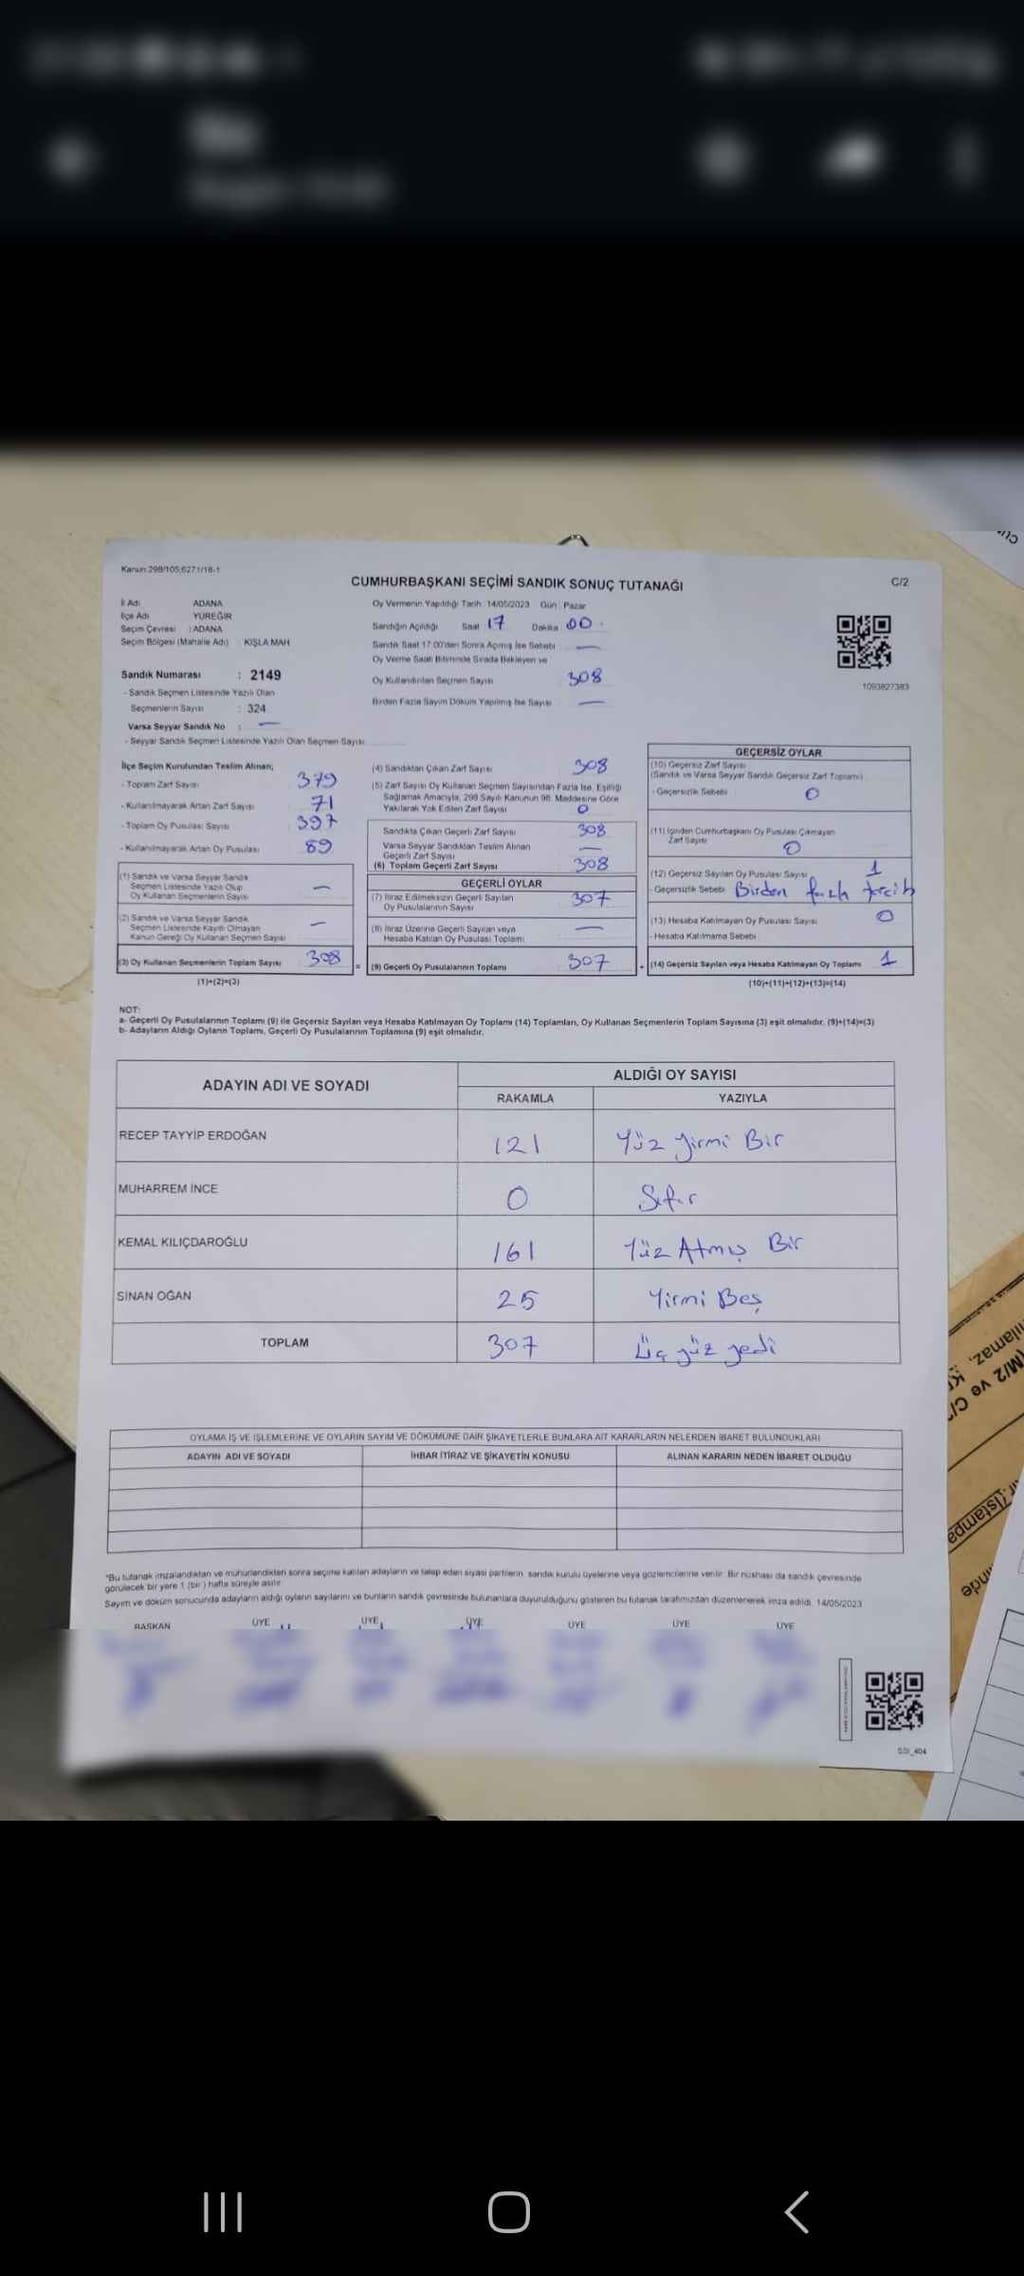 Kanun:298/105;6271/18-1
C/2
CUMHURBAŞKANI SEÇİMİ SANDIK SONUÇ TUTANAĞI
İl Adı ADANA
İlçe Adı YÜREĞİR
Seçim Çevresi : ADANA
Seçim Bölgesi (Mahalle Adı) KIŞLA MAH
Sandık Numarası : 2149
- Sandık Seçmen Listesinde Yazılı Olan
Seçmenlerin Sayısı : 324
Varsa Seyyar Sandık No : —
- Seyyar Sandık Seçmen Listesinde Yazılı Olan Seçmen Sayısı
Oy Vermenin Yapıldığı Tarih :14/05/2023 Gün : Pazar
Sandığın Açıldığı Saat 17 Dakika 00
Sandık Saat 17.00'den Sonra Açılmış İse Sebebi —
Oy Verme Saati Bitiminde Sırada Bekleyen ve
Oy Kullandırılan Seçmen Sayısı 308
Birden Fazla Sayım Döküm Yapılmış İse Sayısı —
1093827383
İlçe Seçim Kurulundan Teslim Alınan;
- Toplam Zarf Sayısı 379
- Kullanılmayarak Artan Zarf Sayısı 71
- Toplam Oy Pusulası Sayısı 397
- Kullanılmayarak Artan Oy Pusulası 89
(1) Sandık ve Varsa Seyyar Sandık
Seçmen Listesinde Yazılı Olup
Oy Kullanan Seçmenlerin Sayısı —
(2) Sandık ve Varsa Seyyar Sandık
Seçmen Listesinde Kayıtlı Olmayan
Kanun Gereği Oy Kullanan Seçmen Sayısı —
(3) Oy Kullanan Seçmenlerin Toplam Sayısı 308
(1)+(2)=(3)
(4) Sandıktan Çıkan Zarf Sayısı 308
(5) Zarf Sayısı Oy Kullanan Seçmen Sayısından Fazla İse, Eşitliği
Sağlamak Amacıyla, 298 Sayılı Kanunun 98. Maddesine Göre
Yakılarak Yok Edilen Zarf Sayısı 0
Sandıkta Çıkan Geçerli Zarf Sayısı 308
Varsa Seyyar Sandıktan Teslim Alınan
Geçerli Zarf Sayısı —
(6) Toplam Geçerli Zarf Sayısı 308
GEÇERLİ OYLAR
(7) İtiraz Edilmeksizin Geçerli Sayılan
Oy Pusulalarının Sayısı 307
(8) İtiraz Üzerine Geçerli Sayılan veya
Hesaba Katılan Oy Pusulası Toplamı —
= (9) Geçerli Oy Pusulalarının Toplamı 307
GEÇERSİZ OYLAR
(10) Geçersiz Zarf Sayısı
(Sandık ve Varsa Seyyar Sandık Geçersiz Zarf Toplamı)
- Geçersizlik Sebebi 0
(11) İçinden Cumhurbaşkanı Oy Pusulası Çıkmayan
Zarf Sayısı 0
(12) Geçersiz Sayılan Oy Pusulası Sayısı 1
- Geçersizlik Sebebi Birden fazla tercih
(13) Hesaba Katılmayan Oy Pusulası Sayısı 0
- Hesaba Katılmama Sebebi
+ (14) Geçersiz Sayılan veya Hesaba Katılmayan Oy Toplamı 1
(10)+(11)+(12)+(13)=(14)
NOT:
a- Geçerli Oy Pusulalarının Toplamı (9) ile Geçersiz Sayılan veya Hesaba Katılmayan Oy Toplamı (14) Toplamları, Oy Kullanan Seçmenlerin Toplam Sayısına (3) eşit olmalıdır. (9)+(14)=(3)
b- Adayların Aldığı Oyların Toplamı, Geçerli Oy Pusulalarının Toplamına (9) eşit olmalıdır.
ADAYIN ADI VE SOYADI ALDIĞI OY SAYISI
RAKAMLA YAZIYLA
RECEP TAYYİP ERDOĞAN 121 Yüz yirmi Bir
MUHARREM İNCE 0 Sıfır
KEMAL KILIÇDAROĞLU 161 Yüz Atmış Bir
SİNAN OĞAN 25 Yirmi Beş
TOPLAM 307 Üç yüz yedi
OYLAMA İŞ VE İŞLEMLERİNE VE OYLARIN SAYIM VE DÖKÜMÜNE DAİR ŞİKAYETLERLE BUNLARA AİT KARARLARIN NELERDEN İBARET BULUNDUKLARI
ADAYIN ADI VE SOYADI İHBAR İTİRAZ VE ŞİKAYETİN KONUSU ALINAN KARARIN NEDEN İBARET OLDUĞU
*Bu tutanak imzalandıktan ve mühürlendikten sonra seçime katılan adayların ve talep eden siyasi partilerin sandık kurulu üyelerine veya gözlemcilerine verilir. Bir nüshası da sandık çevresinde
görülecek bir yere 1 (bir) hafta süreyle asılır.
Sayım ve döküm sonucunda adayların aldığı oyların sayılarını ve bunların sandık çevresinde bulunanlara duyurulduğunu gösteren bu tutanak tarafımızdan düzenlenerek imza edildi. 14/05/2023
BAŞKAN ÜYE ÜYE ÜYE ÜYE ÜYE ÜYE
(M/2 ve C/
(İstampa